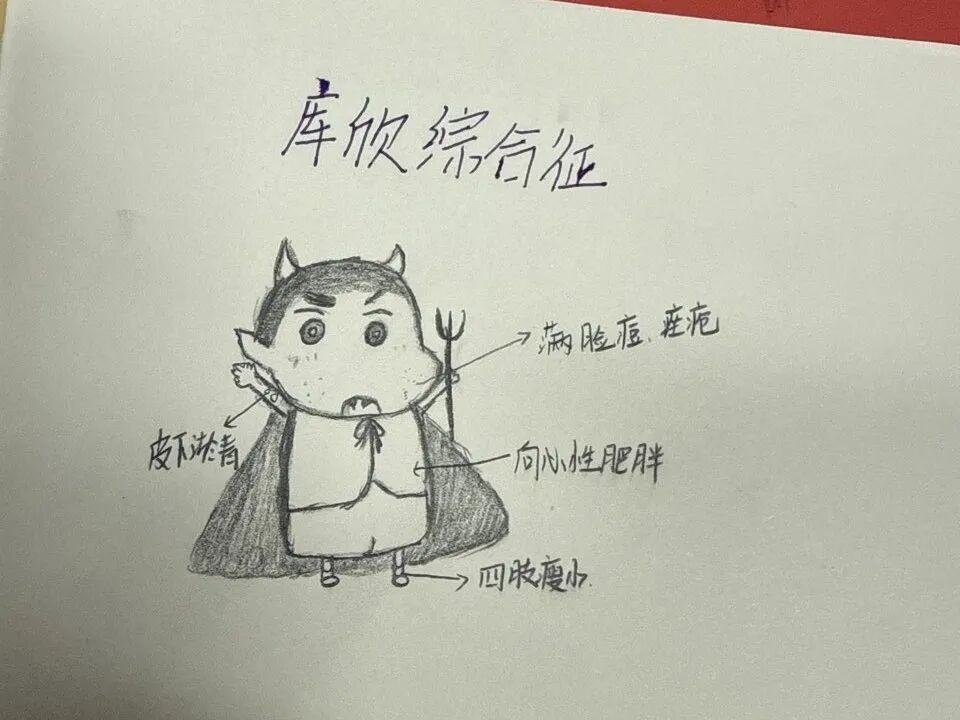 库欣综合征
满脸痘、痤疮
皮下淤青
向心性肥胖
四肢瘦小